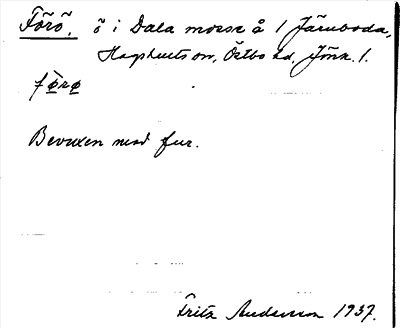 Förö, ö i Dala mosse å 1 Järnboda,
Hagshults sn, Östbo hd, Jönk. l.
førø
Bevuxen med fur.
Fritz Anderson 1937.